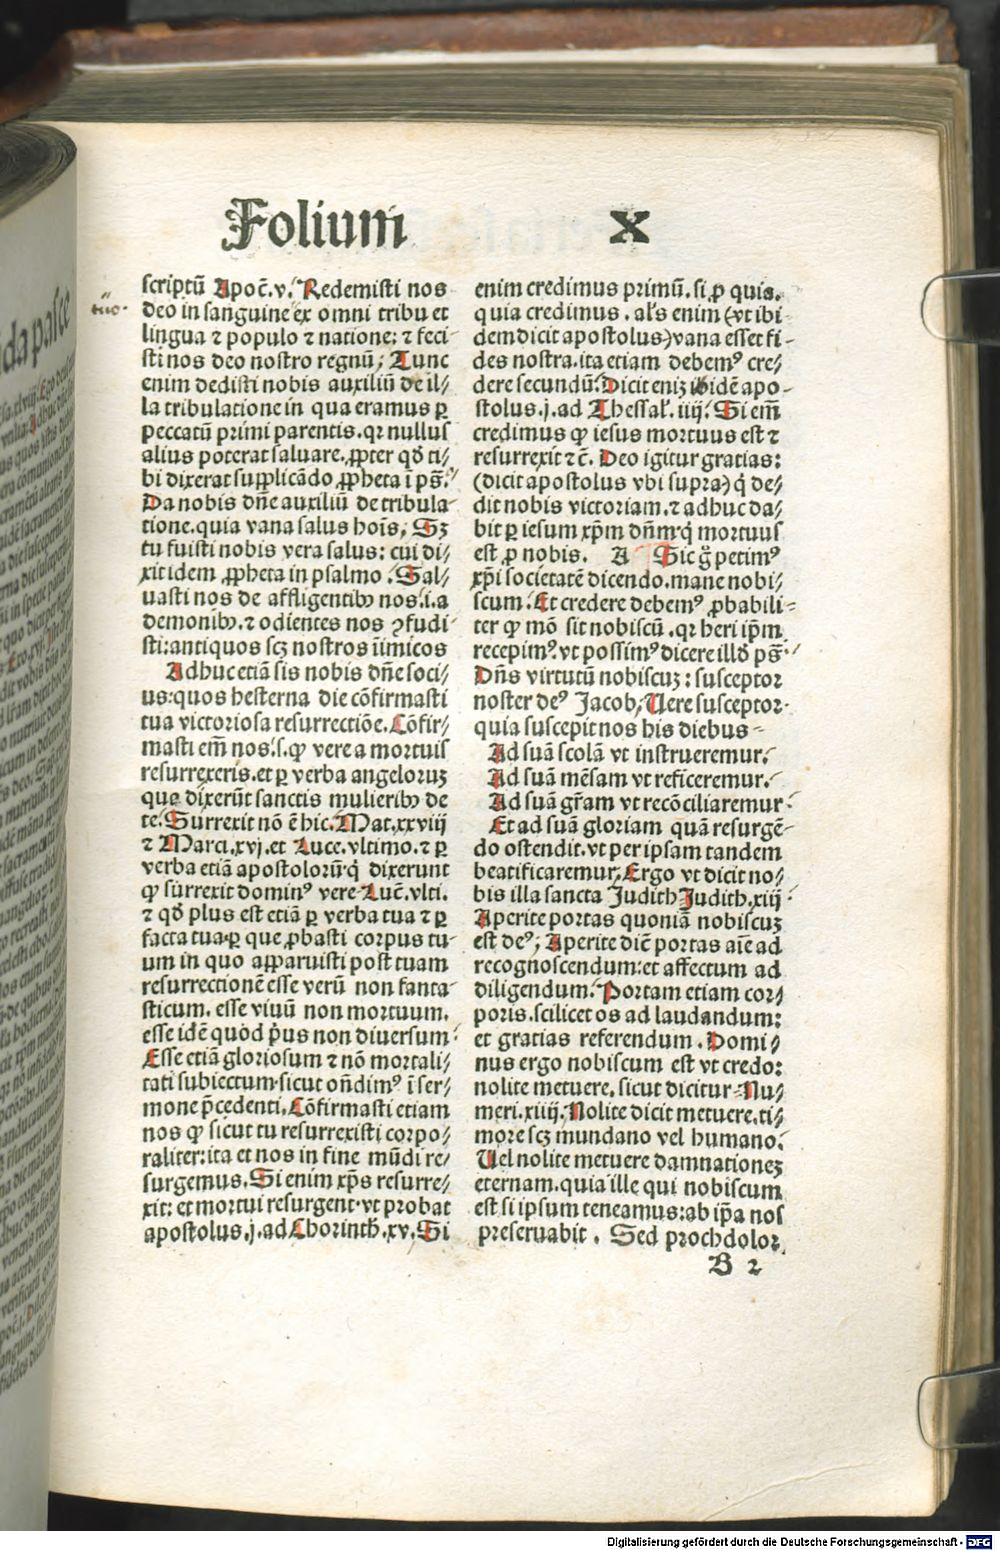 Folium X
scriptū Apoc̄.v. Redemisti nos
deo in sanguine ex omni tribu et
lingua ⁊ populo ⁊ natione: ⁊ feci⸗
sti nos deo nostro regnū; Tunc
enim dedisti nobis auxiliū de il⸗
la tribulatione in qua eramus ꝑ
peccatū primi parentis. qꝛ nullus
alius poterat saluare. ꝓpter qđ ti⸗
bi dixerat supplicādo ꝓpheta ī ps̄.
Da nobis dn̄e auxiliū de tribula⸗
tione. quia vana salus hoīs, Sꝫ
tu fuisti nobis vera salus: cui di⸗
xit idem ꝓpheta in psalmo. Sal⸗
uasti nos de affligentibꝰ nos.i.a
demonibꝰ. ⁊ odientes nos ꝯfudi⸗
sti: antiquos scꝫ nostros īimicos
Adhuc etiā sis nobis dn̄e soci⸗
us: quos hesterna die cōfirmasti
tua victoriosa resurrectiōe. Cōfir⸗
masti em̄ nos.s. ꝙ vere a mortuis
resurrexeris. et ꝑ verba angeloruꝫ
que dixerūt sanctis mulieribꝰ de
te. Surrexit nō ē hic. Mat.xxviij
⁊ Marci.xvj. et Luce.vltimo. ⁊ ꝑ
verba etiā apostolorū. q̇ dixerunt
ꝙ surrexit dominꝰ vere. Luc̄.vlti.
⁊ qđ plus est etiā ꝑ verba tua ⁊ ꝑ
facta tua. ꝑ que ꝓbasti corpus tu⸗
um in quo apparuisti post tuam
resurrectionē esse verū non fanta⸗
sticum. esse viuū non mortuum.
esse idē quod p̄us non diuersum.
Esse etiā gloriosum ⁊ nō mortali⸗
tati subiectum. sicut on̄dimꝰ ī ser⸗
mone p̄cedenti. Cōfirmasti etiam
nos ꝙ sicut tu resurrexisti corpo⸗
raliter: ita et nos in fine mūdi re⸗
surgemus. Si enim xp̄s resurre⸗
xit: et mortui resurgent. vt probat
apostolus.j. ad Chorinth̄.xv. Si
enim credimus primū. si. ꝓ quis.
quia credimus. al's enim (vt ibi
dem dicit apostolus) vana esset fi⸗
des nostra. ita etiam debemꝰ cre⸗
dere secundū. Dicit eniꝫ ibidē apo⸗
stolus.j. ad Thessal'. iiij. Si em̄
credimus ꝙ iesus mortuus est ⁊
resurrexit ⁊c̄. Deo igitur gratias:
(dicit apostolus vbi supra) q̇ de⸗
dit nobis victoriam. ⁊ adhuc da⸗
bit ꝑ iesum xp̄m dn̄m. q̇ mortuus
est ꝓ nobis. A Sic g̊ petimꝰ
xp̄i societatē dicendo. mane nobi⸗
scum. Et credere debemꝰ ꝓbabili⸗
ter ꝙ mō sit nobiscū. qꝛ heri ip̄m
recepimꝰ. vt possimꝰ dicere illđ ps̄.
Dn̄s virtutū nobiscuꝫ: susceptor
noster deꝰ Jacob; Uere susceptor.
quia suscepit nos his diebus
Ad suā scolā vt instrueremur.
Ad suā mēsam vt reficeremur.
Ad suā gr̄am vt recōciliaremur.
Et ad suā gloriam quā resurgē⸗
do ostendit. vt per ipsam tandem
beatificaremur. Ergo vt dicit no⸗
bis illa sancta Judith. Judith.xiij
Aperite portas quoniā nobiscuꝫ
est deꝰ; Aperite dic̄ portas aīe ad
recognoscendum: et affectum ad
diligendum. Portam etiam cor⸗
poris. scilicet os ad laudandum:
et gratias referendum. Domi⸗
nus ergo nobiscum est vt credo:
nolite metuere. sicut dicitur Nu⸗
meri.xiiij. Nolite dicit metuere. ti⸗
more scꝫ mundano vel humano.
Uel nolite metuere damnationeꝫ
eternam. quia ille qui nobiscum
est si ipsum teneamus: ab ip̄a nos
preseruabit. Sed prochdolor
B 2
Digitalisierung gefördert durch die Deutsche Forschungsgemeinschaft - DFG